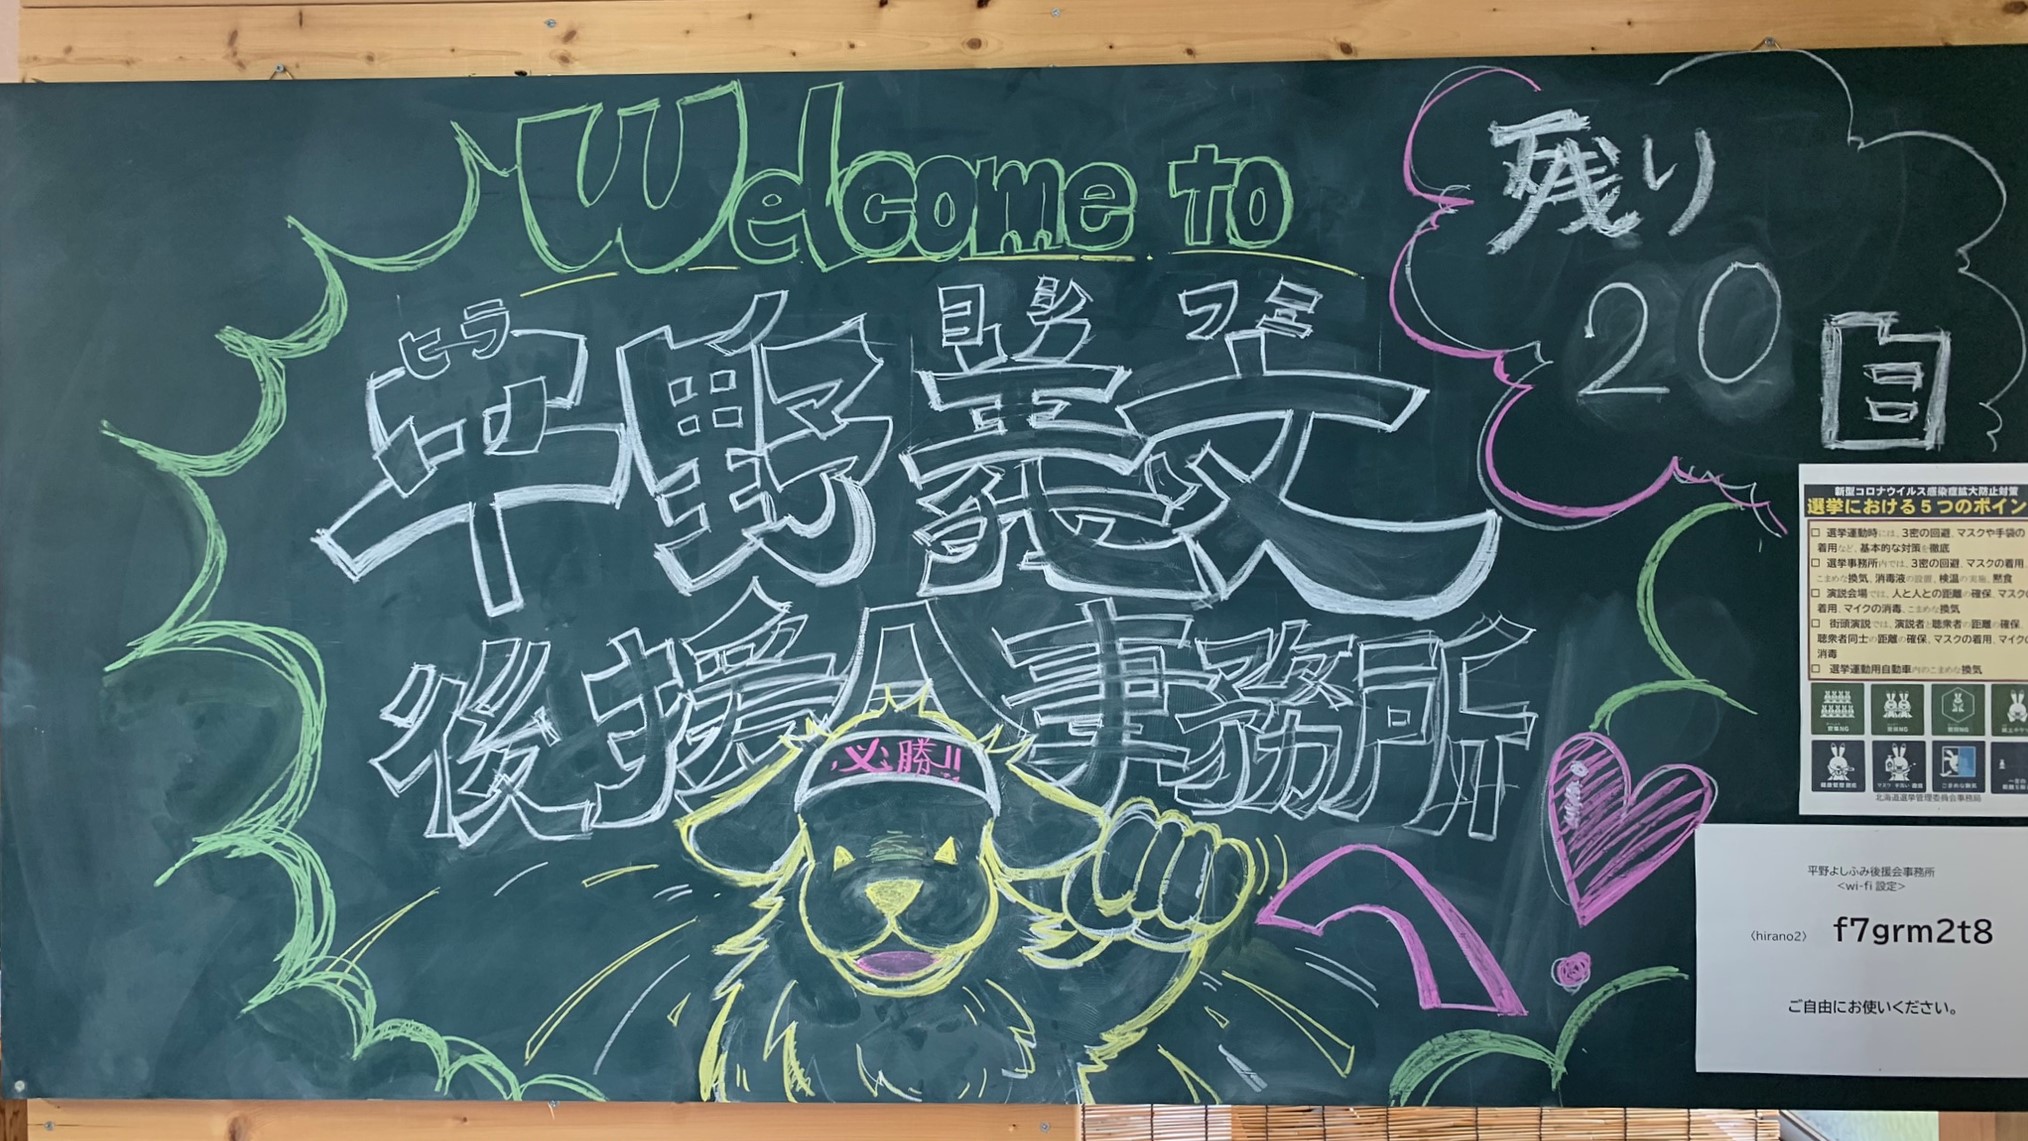 Welcome to
ヒラ ヨシ フミ
平野 文
後援会事務所
へ!
必勝!!
残り
20日
新型コロナウイルス感染症拡大防止対策
選挙における5つのポイン
□ 選挙運動時には、3密の回避、マスクや手袋の
着用など、基本的な対策を徹底
□ 選挙事務所内では、3密の回避、マスクの着用、
こまめな換気、消毒液の設置、検温の実施、黙食
□ 演説会場では、人と人との距離の確保、マスクの
着用、マイクの消毒、こまめな換気
□ 街頭演説では、演説者と聴衆者の距離の確保、
聴衆者同士の距離の確保、マスクの着用、マイクの
消毒
□ 選挙運動用自動車内のこまめな換気
密集NG 密接NG 密閉NG
こまめな換気
北海道選挙管理委員会事務局
平野よしふみ後援会事務所
<wi-fi 設定>
〈hirano2〉 f7grm2t8
ご自由にお使いください。